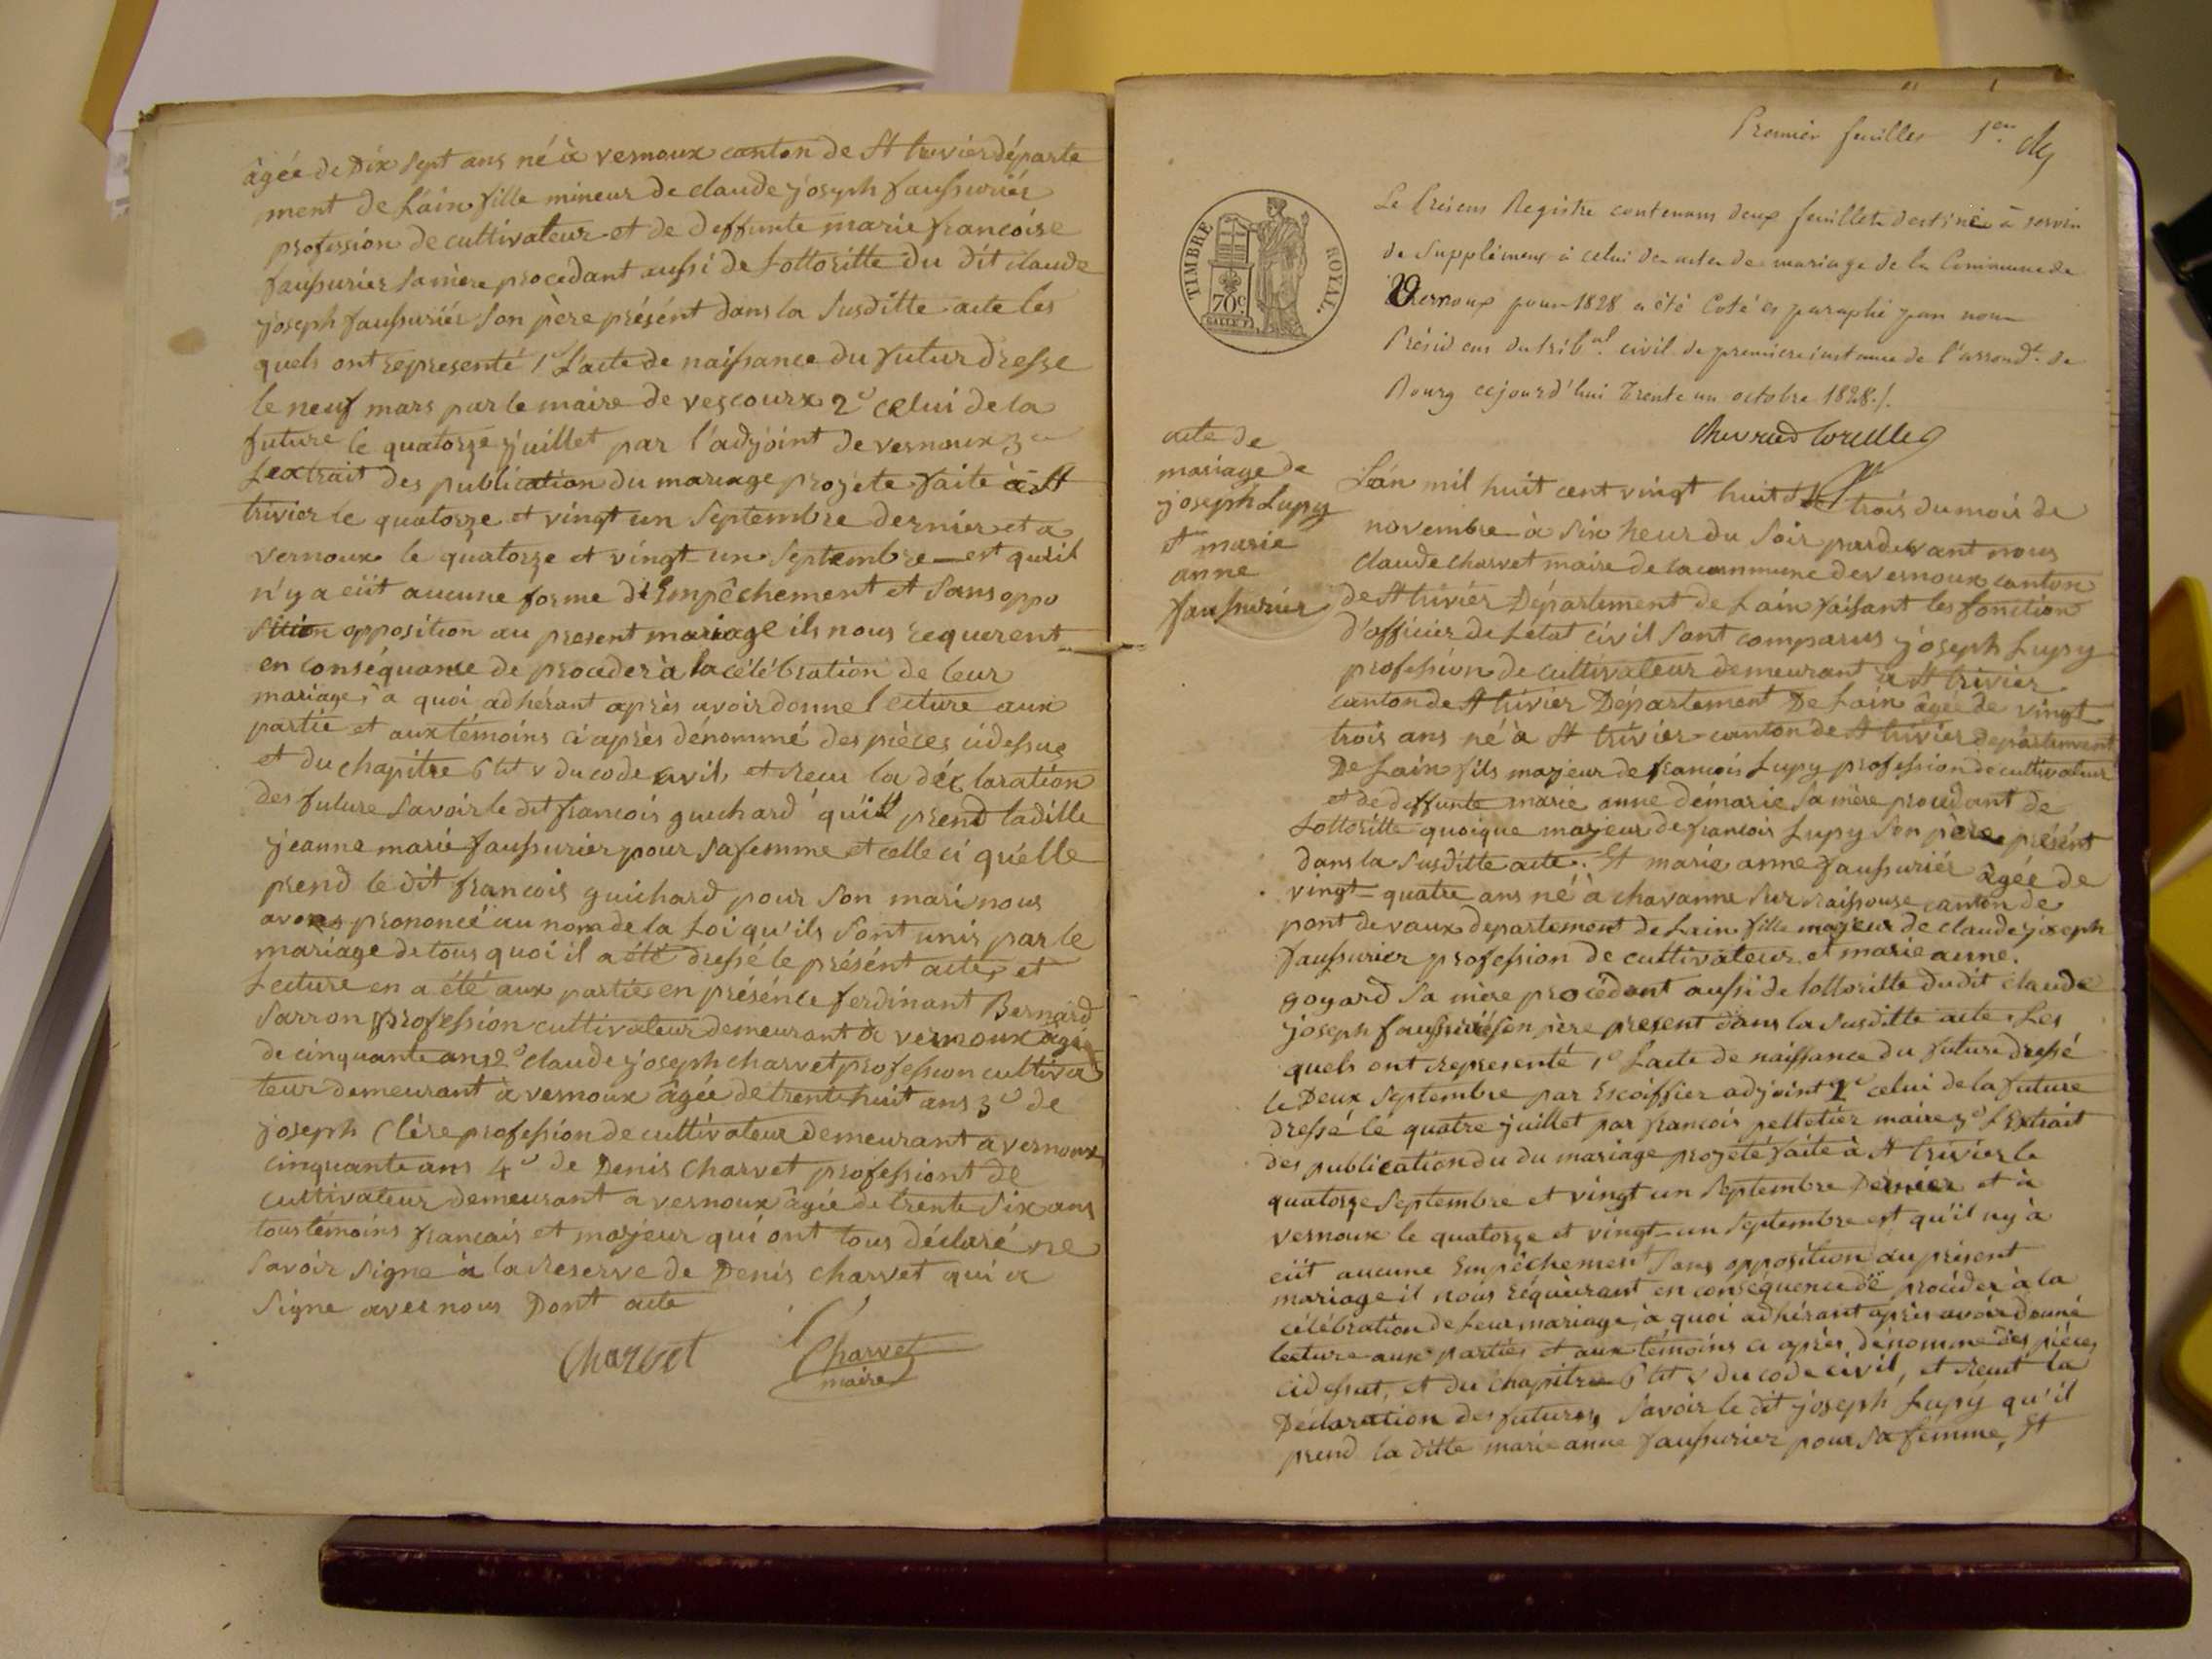 âgée de Dix Sept ans né à vernoux canton de St trivier départe
ment de Lain fille mineur de claude joseph faussuriér
profession de cultivateur et de deffunte marie francoise
faussurier sa mère procedant aussi de Lottoritte du dit claude
joseph faussuriér Son père présént dans la Susditte acte les
quels ont representé 1º L'acte de naissance du futur dresse
le neuf mars par le maire de vescourx 2º celui de la
future le quatorze juillet par l'adjoint de vernoux 3º
Lextrait des publication du mariage projete faite à St
trivier le quatorze et vingt un Septembre dernier et a
vernoux le quatorze et vingt-un Septembre — est qu'il
n'y a eüt aucune forme d'Empêchement et Sans oppo
sition opposition au present mariage ils nous requerent
en conséquance de proceder à la célébration de leur
mariage, a quoi adhérant après avoir donne lecture aux
partie et aux témoins ci après dénommé des pièces cidessus
et du chapitre 6 tit v du code civil, et recu la déclaration
des future Savoir le dit francois guichard qu'il prend laditte
jeanne marie faussurier pour sa femme et celle ci qu'elle
prend le dit francois guichard pour Son mari nous
avons prononcé au nom de la Loi qu'ils Sont unis par le
mariage de tous quoi il a été dressé le présént acte, et
Lecture en a été aux parties en présénce ferdinant Bernard
Sarron profession cultivateur demeurant à vernoux âgé
de cinquante ans 2º claude joseph charvet profession cultiva
teur demeurant à vernoux âgée de trente huit ans 3º de
joseph Clère profession de cultivateur demeurant a vernoux
cinquante ans 4º de Denis Charvet professiont de
cultivateur demeurant a vernoux âgée de trente Six ans
tous témoins francais et majeur qui ont tous déclaré ne
Savoir Signe à la Reserve de Denis charvet qui a
Signe avec nous Dont acte
Charvet
Charvet
maire
Premier feuillet 1er
TIMBRE ROYAL.
70c
Le Présent Registre contenant deux feuillets destiné à servir
de Supplément à celui des actes de mariage de la Commune de
Vernoux pour 1828 a été Coté et paraphé par nous
Président du tribal. civil de première instance de l'arrondt. de
Bourg cejourd'hui Trente un octobre 1828./.
acte de
mariage de
joseph Lupy
et marie
anne
faussurier
Lán mil huit cent vingt huit trois du mois de
novembre à Six heur du Soir pardevant nous
claude charvet maire de la commune de vernoux canton
de St trivier Département de Lain faisant les fonction
d'officier de Létat civil Sont comparus joseph Lupy
profession de cultivateur demeurant à St trivier
canton de St trivier Département De Lain âgée de vingt
trois ans né à St trivier canton de St trivier departement
De Lain fils majeur de francois Lupy profession de cultivateur
et de deffunte marie anne démarie Sa mère procedant de
Lottoritte quoique majeur de francois Lupy Son père présént
dans la Susditte acte. Et marie anne faussuriér âgée de
vingt-quatre ans né à chavanne Sur raissouse canton de
pont de vaux departement de Lain fille majeur de claude joseph
faussurier profession de cultivateur et marie anne.
goyard Sa mère procédant aussi de lottoritte dudit claude
joseph faussurié son père present dans la Susditte acte. Les
quels ont representé 1º Lacte de naissance du future dressé
le Deux Septembre par Escoiffier adjoint 2º celui de la future
dressé le quatre juillet par francois pelletier maire 3º LExtrait
des publication du du mariage projeté faite à St trivier le
quatorze Septembre et vingt un Septembre Dernier et à
vernoux le quatorze et vingt-un Septembre est qu'il ny à
eüt aucune Empêchement Sans opposition au présent
mariage il nous réquèrant en consequence de procéder à la
célébration de Leur mariage, à quoi adhérant après avoir donné
lecture aux parties et aux témoins ci après dénommé des pièces
cidessut, et du chapitre 6 tit v du code civil, et reçut la
Déclaration des futures, Savoir le dit joseph Lupy qu'il
prend la ditte marie anne faussurier pour Sa femme, Et